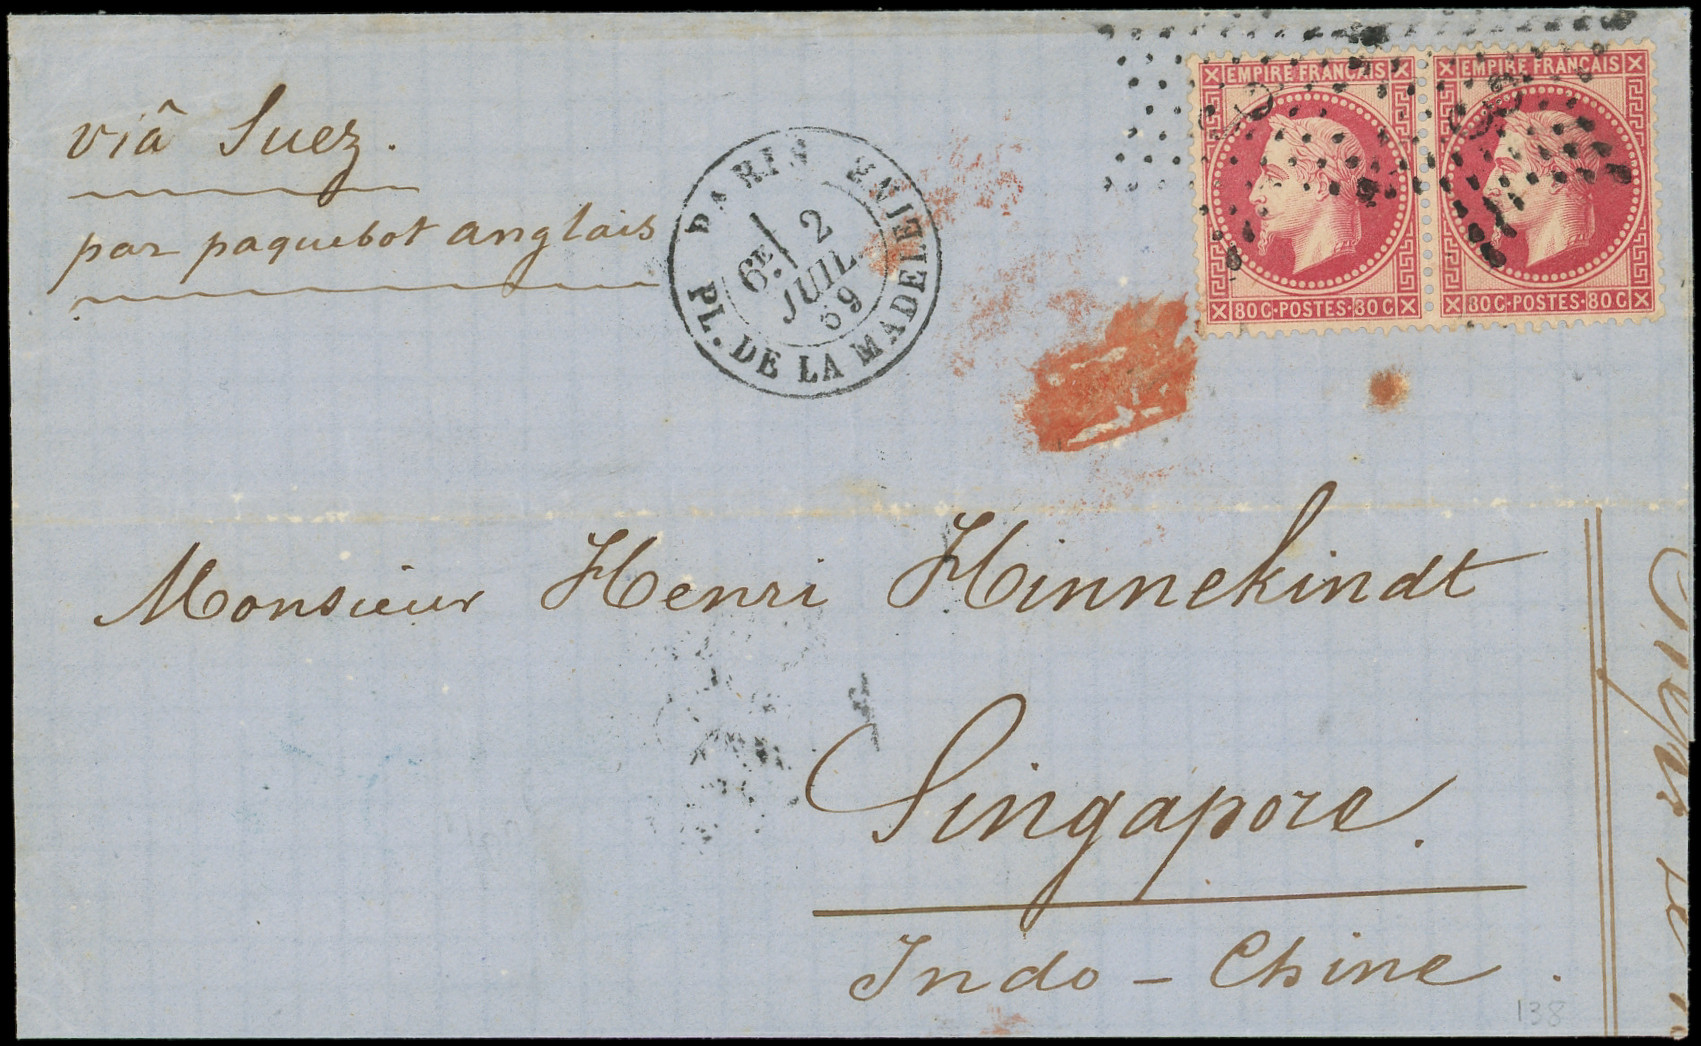 viâ Suez.
par paquebot anglais
PARIS
PL. DE LA MADELEINE
6E
2
JUIL.
69
EMPIRE FRANÇAIS
80 C · POSTES · 80 C
EMPIRE FRANÇAIS
80 C · POSTES · 80 C
Monsieur Henri Hinnekindt
Singapore.
Indo - Chine.
138